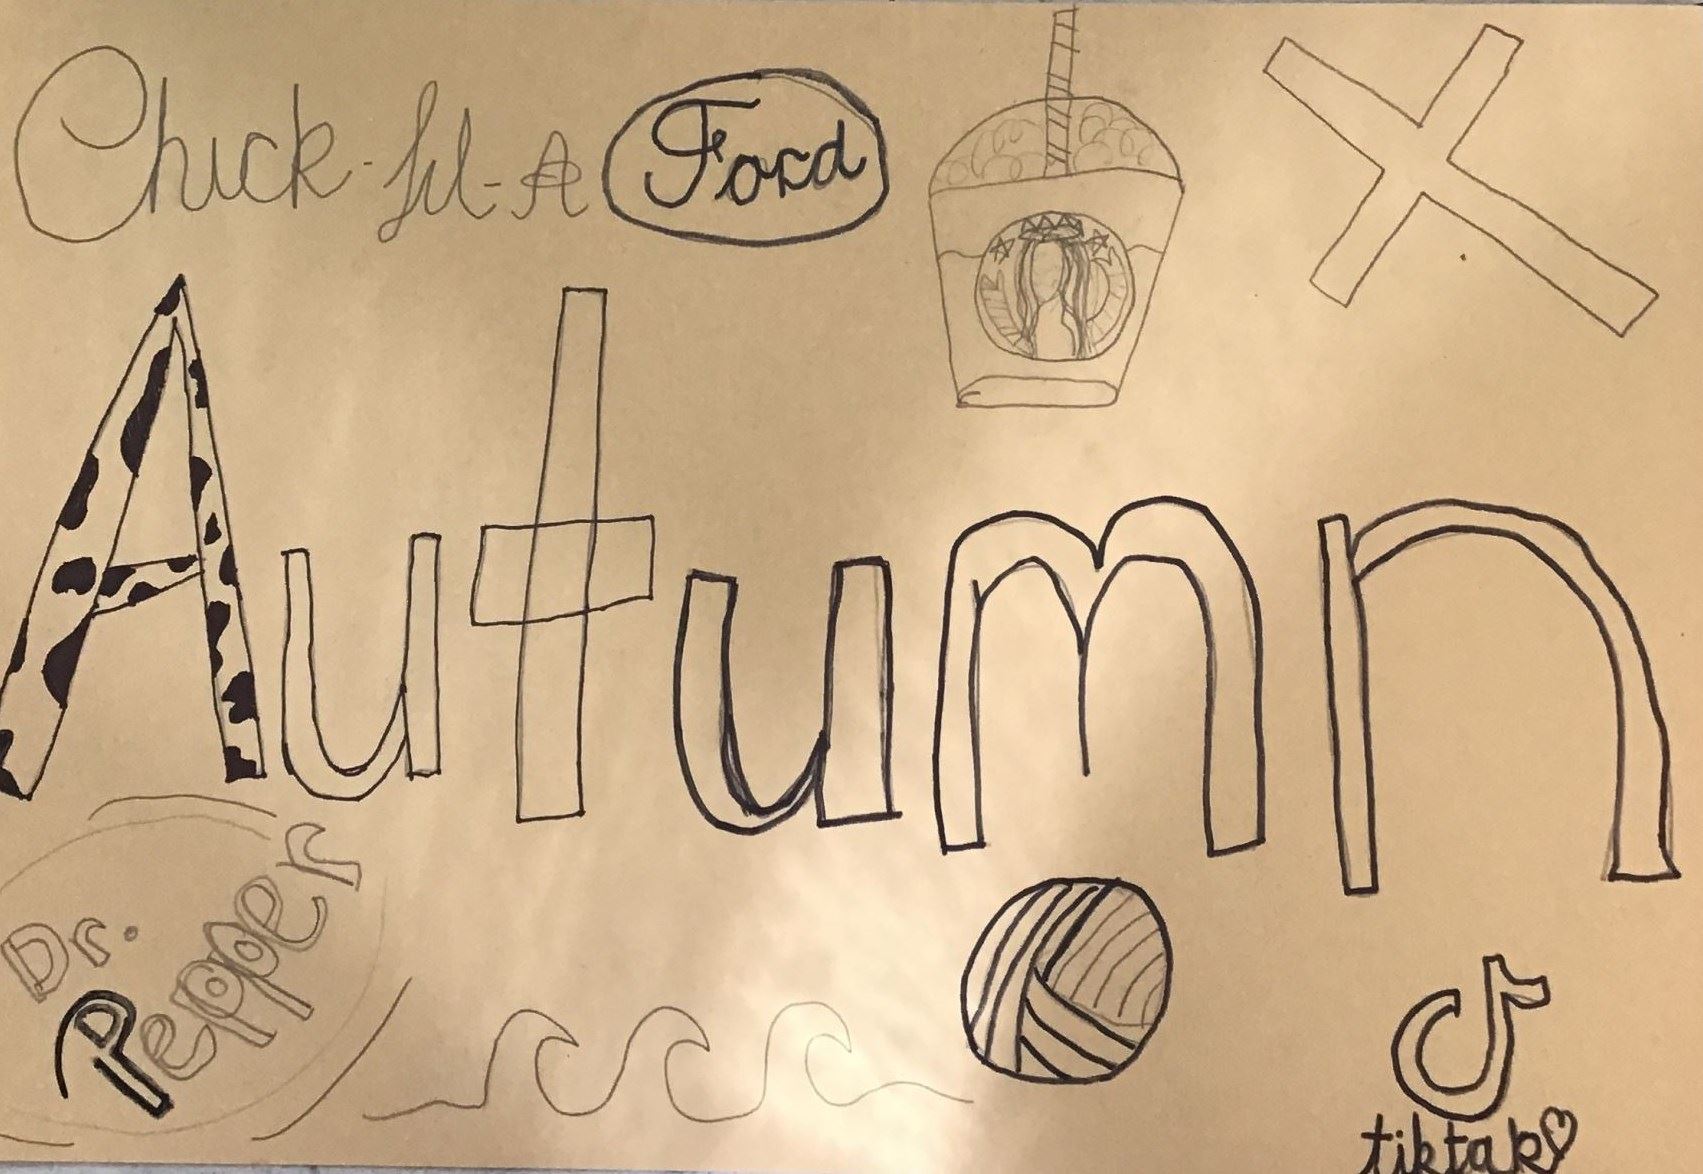 Chick-fil-A
Ford
Autumn
Dr.
Pepper
tiktak